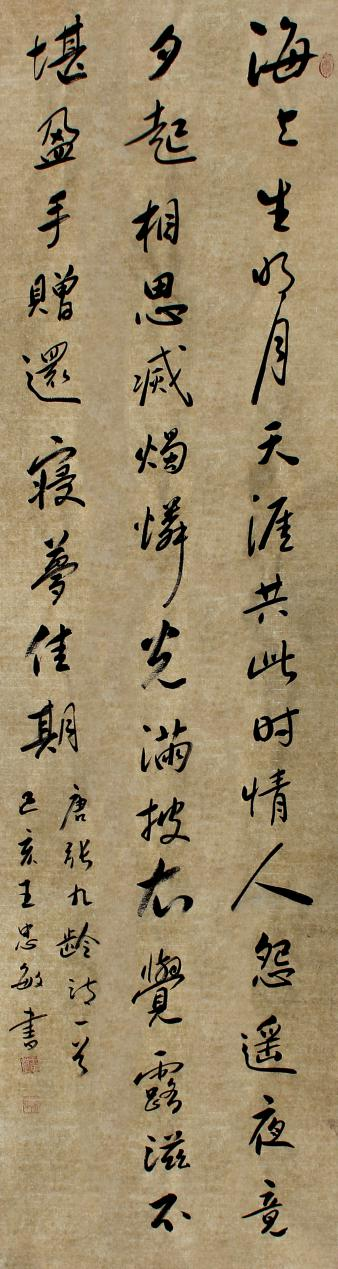 海上生明月天涯共此时情人怨遥夜竟
夕起相思灭烛怜光满披衣觉露滋不
堪盈手贈還寝夢佳期
唐张九龄诗一首
己亥王忠敏书